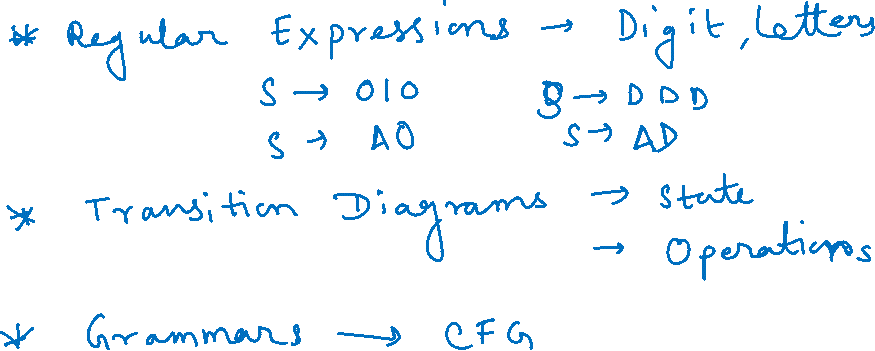 * Regular Expressions → Digit, letters
S → 010 S → D D D
S → A0 S → AD
* Transition Diagrams → State
→ Operations
* Grammars → CFG